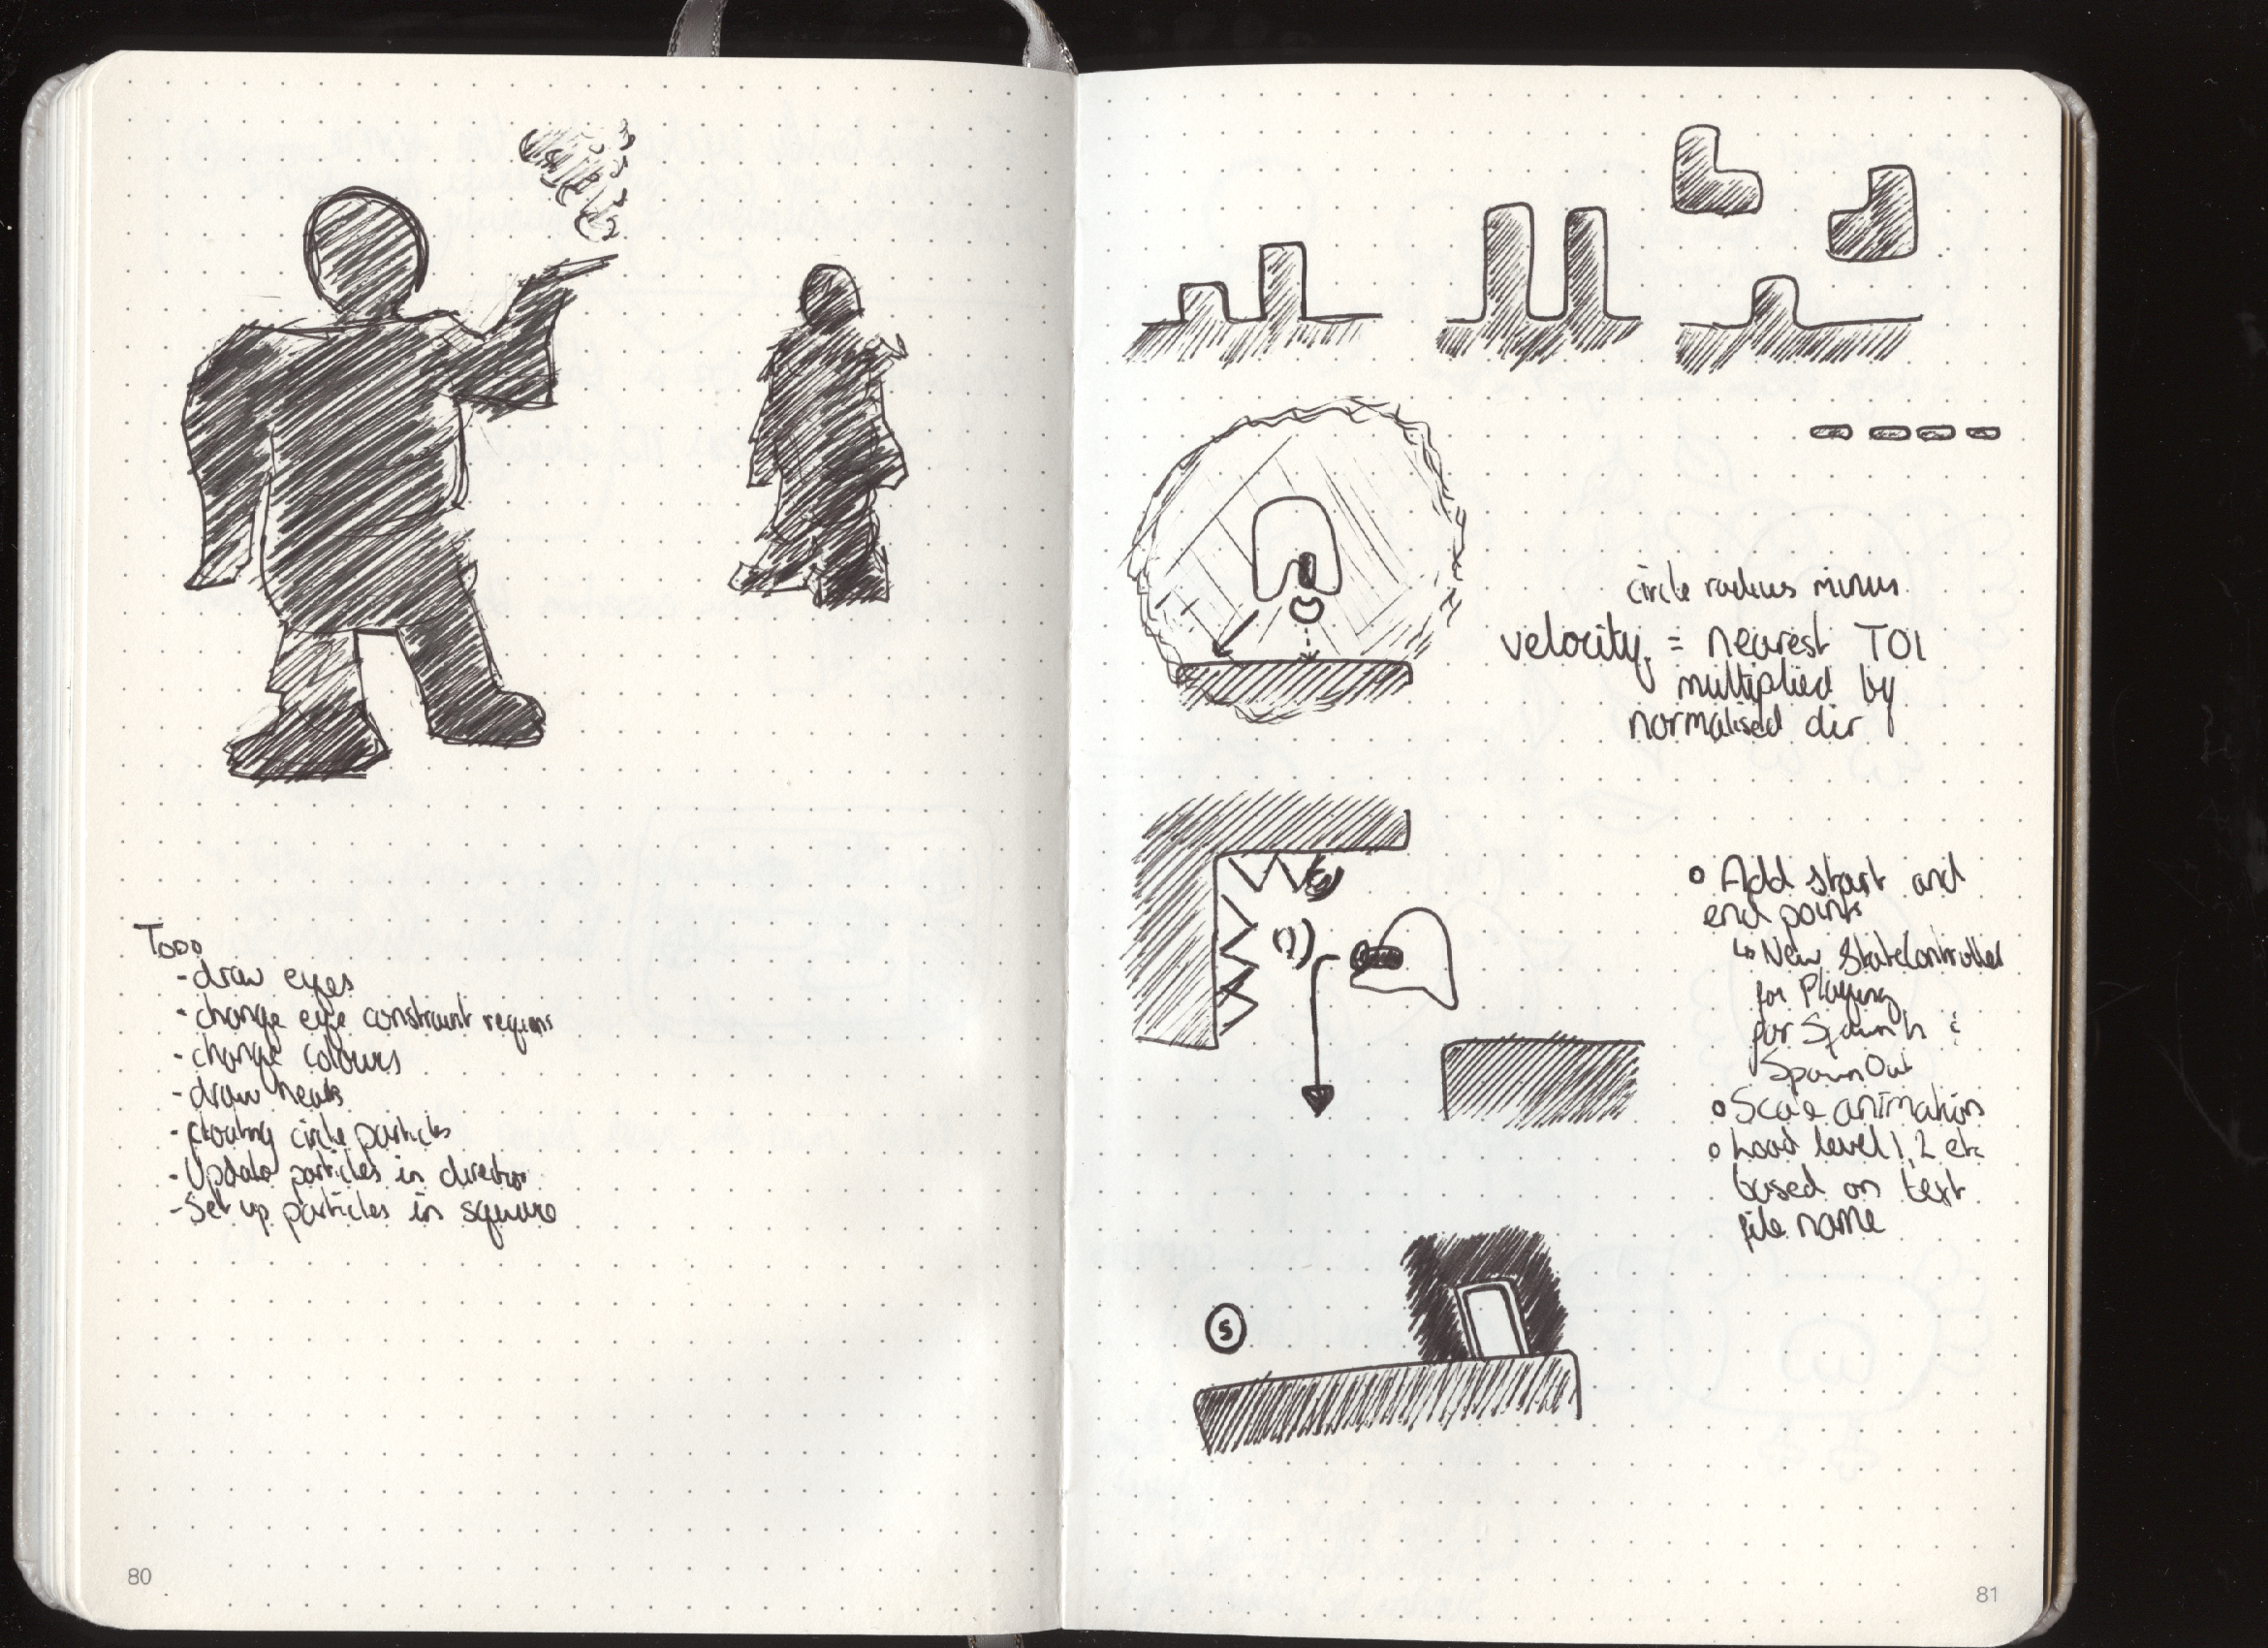 Todo
- draw eyes
- change eye constraint regions
- change colours
- draw heads
- floating circle particles
- Update particles in direction
- Set up particles in square
80
circle radius minus
velocity = nearest TOI
multiplied by
normalised dir
o Add start and
end points
↳ New StateController
for Playing
for SpawnIn &
SpawnOut
o Scale animation
o Load level 1, 2 etc
based on text
file name
S
81